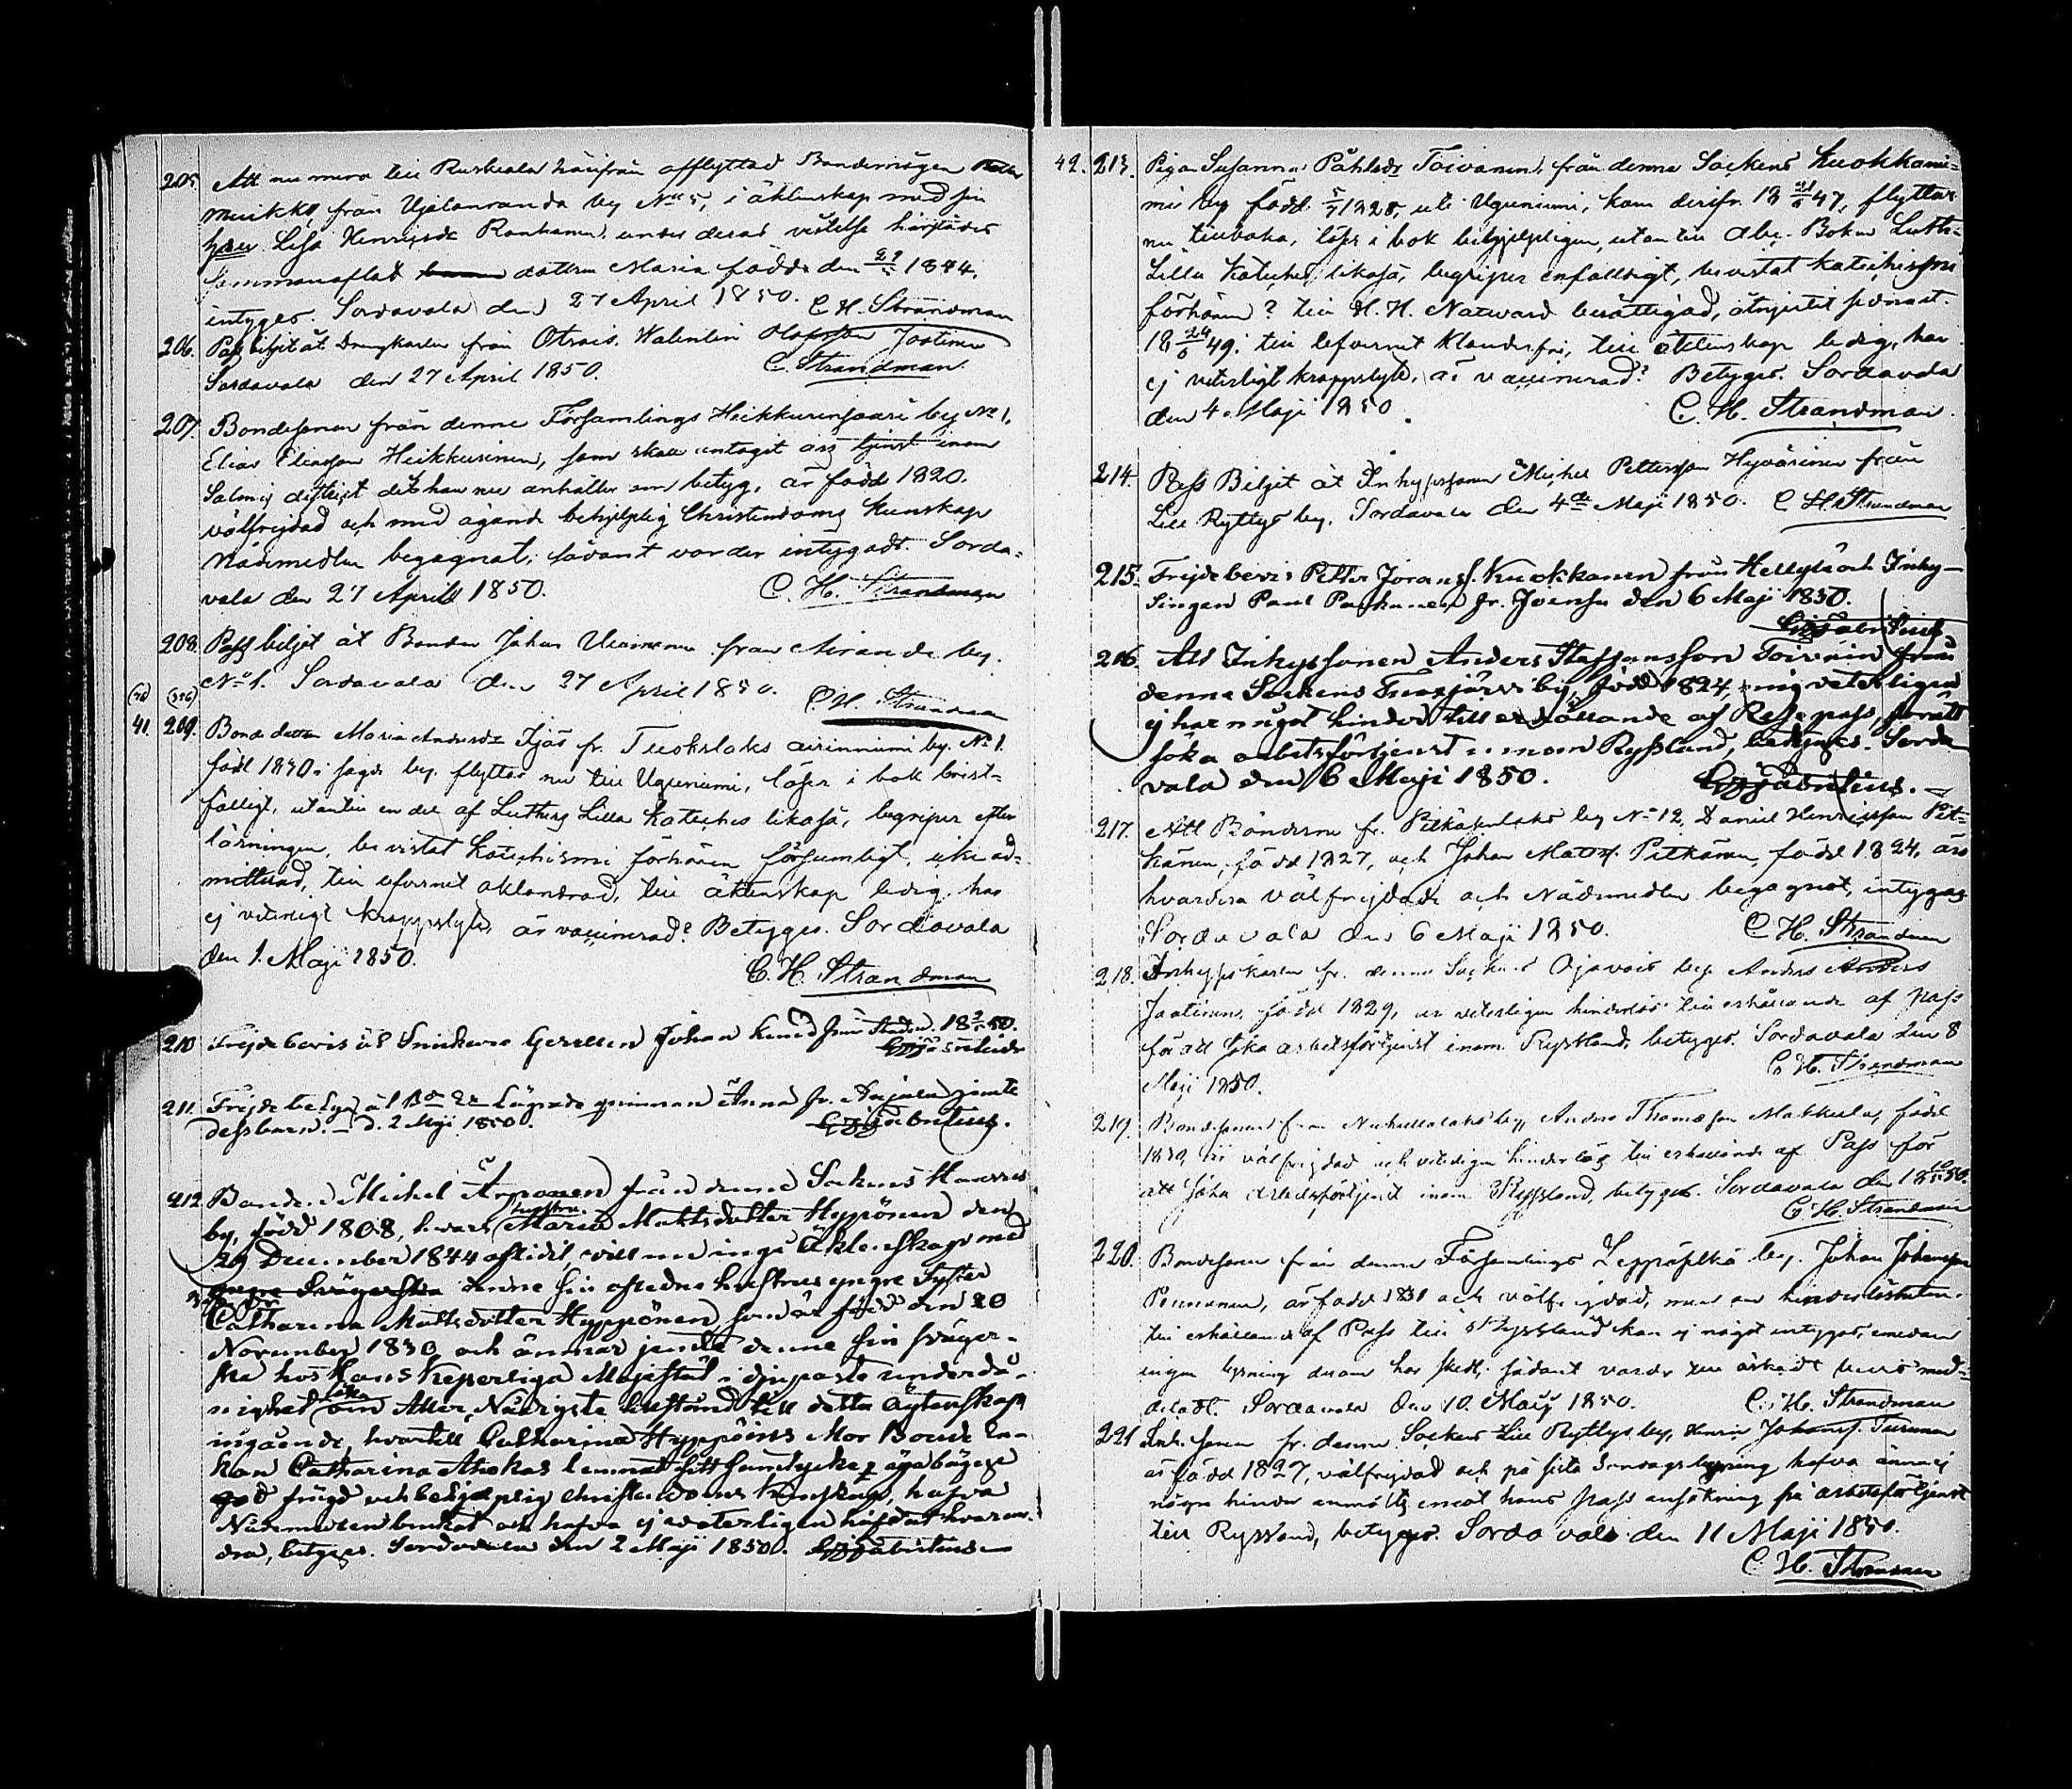 205. Att nu mera till Ruskeala härifrån afflyttad Bondemågen
Muikku, från Ujalanranda by No 5, i äktenskap med sin
hustru Lisa Henricsdr Rankanen, under deras vistelse härstädes
sammanaflat dottren Maria född den 1844,
intygas. Sordavala den 27 April 1850. C. H. Strandman
206. Pass biljet åt Drängkarlen från Otrais, Walentin Olofsson Jaatinen
Sordavala den 27 April 1850. C. Strandman.
207. Bondesonen från denne Församlings Heikkurinsaari by No 1,
Elias Eliasson Heikkurinen, som skall antagit års tjenst inom
Salmis district dit han nu anhåller om betyg, är född 1820.
välfrejdad och med ägande behjelplig Christendoms kunskap
Nådmedlen begagnat; sådant varder intygadt. Sorda-
vala den 27 April 1850. C. H. Strandman
208. Pass biljet åt Bonden Johan från Airanda by.
No 1. Sordavala den 27 April 1850. C. H. Strandman
41. 209. Bonde dottren Maria Andersdr Ijäs fr. Tuokslaks airinniemi by. No 1.
född 1830 i sagde by. flyttar nu till Uguniemi, läser i bok brist-
fälligt, utantill en del af Luthers Lilla Kateches likaså, begriper efter
läsningen, bevistat Katechismi förhören försumligt, icke ad-
mitterad, till lefvernet oklandrad, till äktenskap ledig, har
ej veterligt kroppslyte, är vaccinerad? Betygas. Sordavala
den 1. Maji 1850.
C. H. Strandman
210 Frejdebevis åt Snickare Gesällen Johan från Staden. 18 50.
211. Frejdebetyg åt Lägrade qvinnan Anna fr. Anjala jemte
dess barn. – d. 2 Maji 1850.
212. Bonden Michel Arponen från denne Sockens
by, född 1808, hvars hustru Maria Mattsdotter Hyppönen den
29 December 1844 aflidit, vill nu ingå Äktenskap med
denne sin aflednes hustrus yngre Syster
Catharina Mattsdotter Hyppönen, som är född den 20
November 1830, och ämnar jemte denne sin sväger-
ska hos Hans Kejserliga Majestät i djupaste underdå-
nighet söka om Aller Nådigste tillstånd till detta Äktenskaps
ingående, hvartill Catharina Hyppöins Mor Bonde En-
kan Catharina Ahokas lemnat sitt samtycke; äga bägge
god frägd och behjelplig christendoms kunskap, hafva
Nådemedlen brukat och hafva ej veterligen häfdat hvaran-
dra, betygas. Sordavala den 2 Maji 1850.
42. 213. Pigan Susanna Påhlsdr Toivanen, från denne Sockens Kuokkanie-
mi by född 5/7 1828, uti Uguniemi, kom derifr. 18 47, flyttar
nu tillbaka, läser i bok behjelpligen, utantill abc-Boken Luth.
Lilla Kateches likaså, begriper enfalldigt, bevistat katechismi
förhören? till H. H. Nattvard berättigad, åtnjutit sednast.
18 24/6 49. till lefvernet klanderfri, till äktenskap ledig, har
ej veterligt kroppslyte, är vaccinerad? Betygas. Sordavala
den 4 Maji 1850. C. H. Strandman.
214. Pass Biljet åt Inhysessonen Michel Pettersson Hyvärinen från
Lill Ryttys by. Sordavala den 4de Maji 1850. C. H. Strandman
215. Frejdebevis Petter Joranss. Kuokkanen från Hellylä och Inhy-
singen Paul fr. Joensu den 6 Maji 1850.
216. Att Inhyssonen Anders Staffansson Toivain från
denne Sockens by, född 1824, mig veterligen
ej har något hinder till erhållande af Resepass, för att
söka arbetsförtjenst innom Ryssland, betygas. Sorda
vala den 6 Maji 1850.
217. Att Bönderne fr. Pitkäpaltaks by No 12, Daniel Henricsson Pit-
känen, född 1827, och Johan Matts. Pitkänen, född 1824, äro
hvardera välfrejdade och Nådmedlen begagnat, intygas
Sordavala den 6 Maji 1850. C. H. Strandman
218. Inhysskarlen fr. denne Sockens Ojavois by Anders Anders
Jaatinen, född 1829, är veterligen hinderlös till erhållande af pass
för att söka arbetsförtjenst inom Ryssland, betygas. Sordavala den 8
Maji 1850. C. H. Strandman
219. Bondesonen från by, Anders Thomasson Matkula, född
är välfrejdad och veterligen hinderlös till erhållande af Pass för
att söka arbetsförtjenst inom Ryssland, betygas. Sordavala den 18 50.
C. H. Strandman
220. Bondesonen från denne Församlings Leppäselkä by. Johan Johansson
Pennanen, är född 1831 och välfrejdad, men om hinderlösheten
till erhållande af Pass till Ryssland kan ej något intygas, emedan
ingen lysning derom har skett; sådant varder till äskadt bevis med-
deladt. Sordavala den 10 Maij 1850. C. H. Strandman
221 Inh. sonen fr. denne Sockens Lill Ryttys by, Henric Johanss. Turunen
är född 1827, välfrejdad och på sista Söndags lysning hafva ännu ej
några hinder anmälts emot hans pass ansökning på arbetsförtjenst
till Ryssland, betygas. Sordavala den 11 Maji 1850.
C. H. Strandman